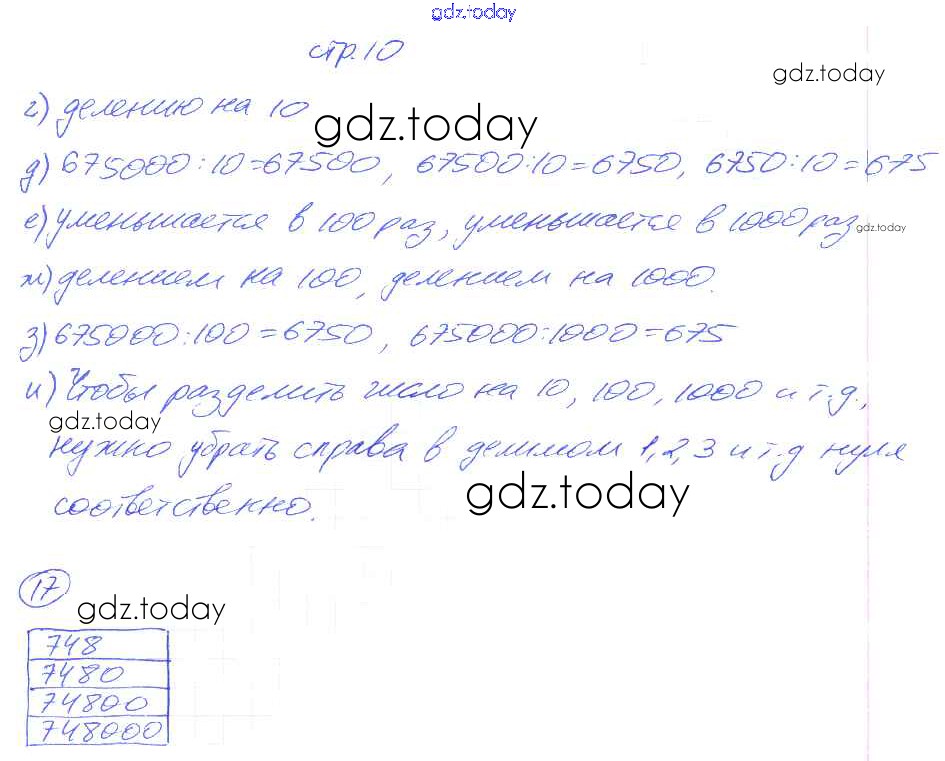 gdz.today
стр. 10
gdz.today
г) делению на 10
gdz.today
д) 675000:10=67500, 67500:10=6750, 6750:10=675
е) уменьшается в 100 раз, уменьшается в 1000 раз
gdz.today
ж) делением на 100, делением на 1000.
з) 675000:100=6750, 675000:1000=675
и) Чтобы разделить число на 10, 100, 1000 и т.д.,
gdz.today
нужно убрать справа в делимом 1, 2, 3 и т.д нуля
gdz.today
соответственно.
17
gdz.today
748
7480
74800
748000